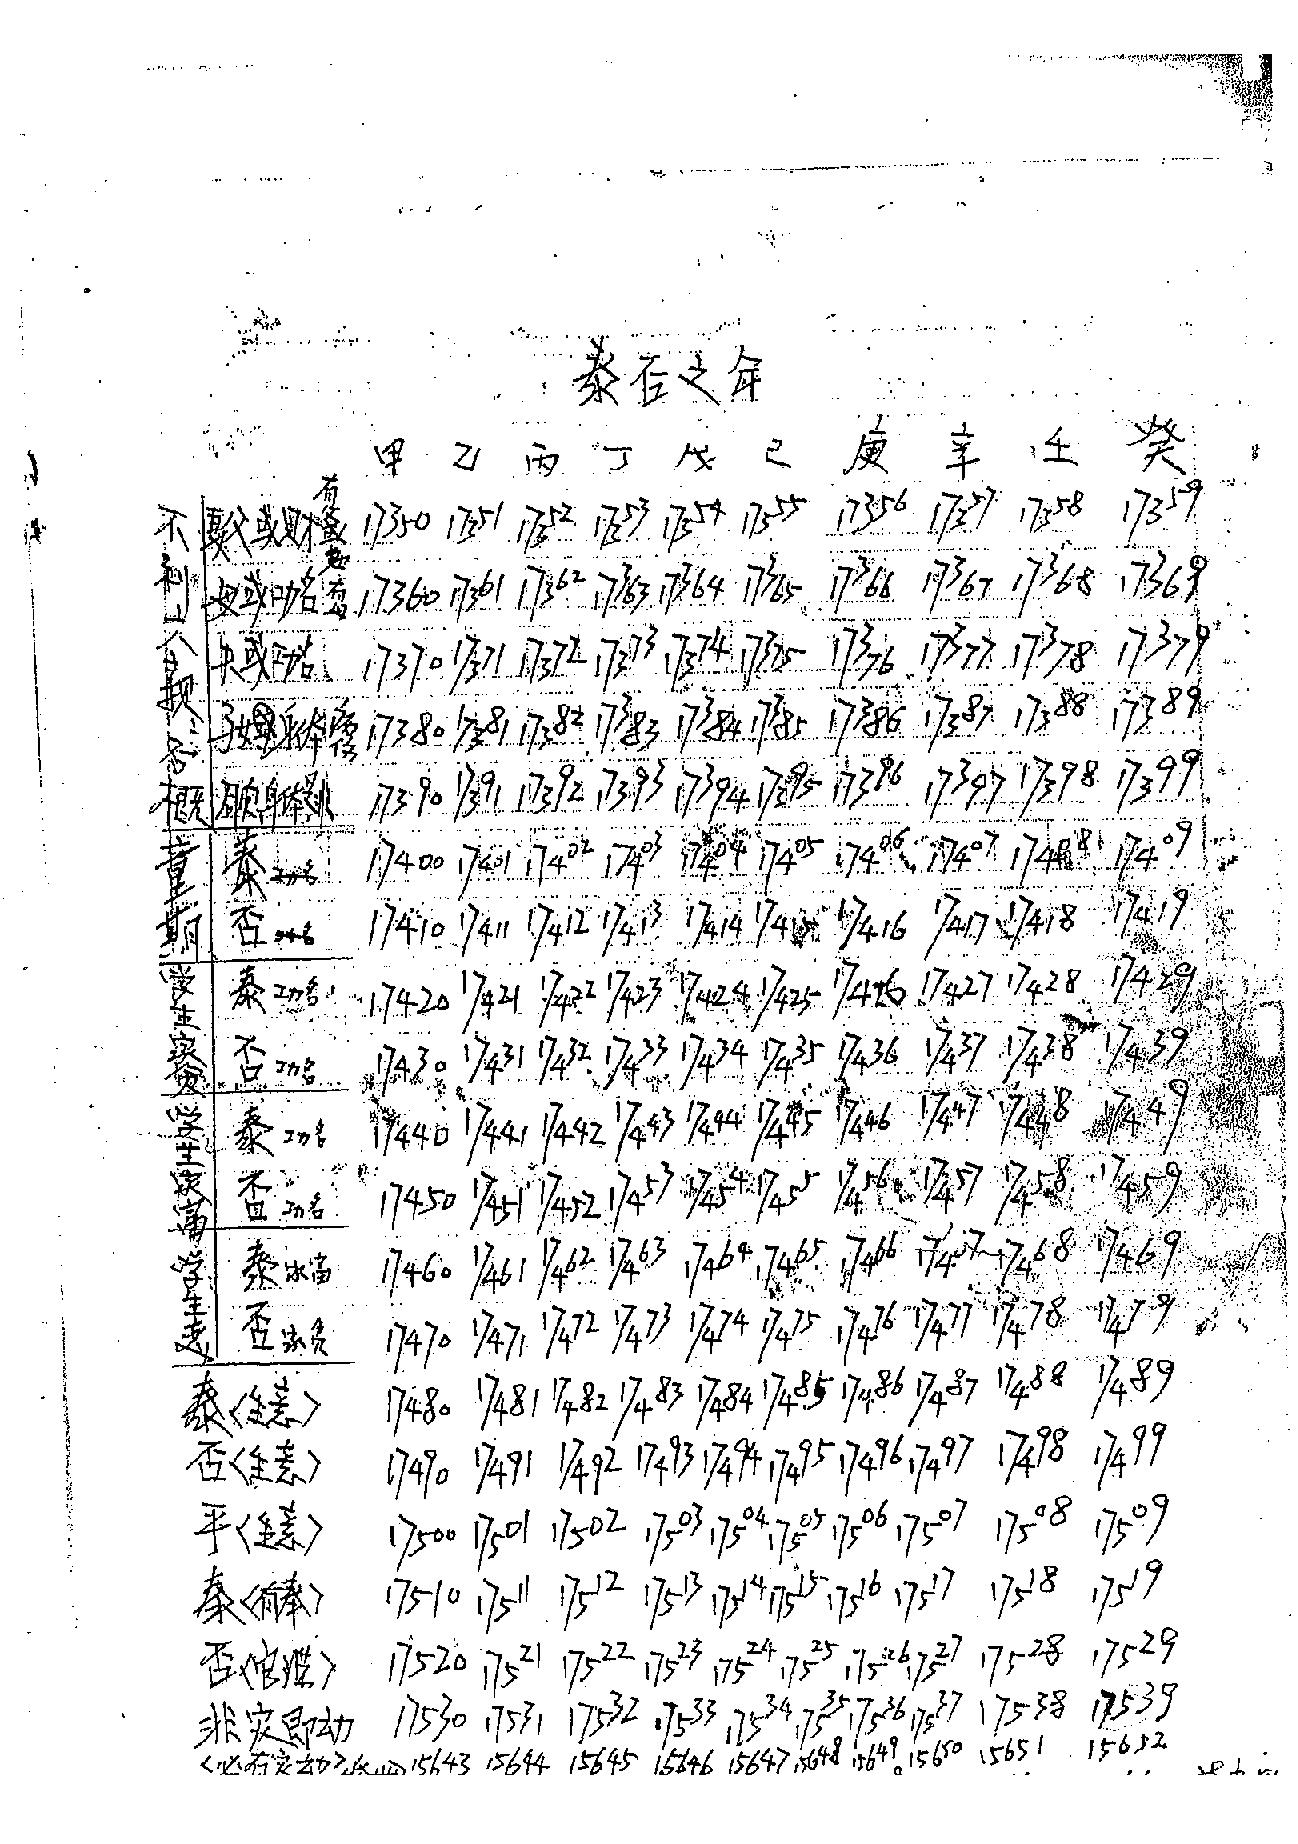 泰否之年
甲 乙 丙 丁 戊 己 庚 辛 壬 癸
17350 17351 17352 17353 17354 17355 17356 17357 17358 17359
母或功名 17360 17361 17362 17363 17364 17365 17366 17367 17368 17369
夫或功名 17370 17371 17372 17373 17374 17375 17376 17377 17378 17379
17380 17381 17382 17383 17384 17385 17386 17387 17388 17389
17390 17391 17392 17393 17394 17395 17396 17397 17398 17399
童期 泰 功名 17400 17401 17402 17403 17404 17405 17406 17407 17408 17409
否 功名 17410 17411 17412 17413 17414 17415 17416 17417 17418 17419
学生家贫 泰 功名 17420 17421 17422 17423 17424 17425 17426 17427 17428 17429
否 功名 17430 17431 17432 17433 17434 17435 17436 17437 17438 17439
学生家富 泰 功名 17440 17441 17442 17443 17444 17445 17446 17447 17448 17449
否 功名 17450 17451 17452 17453 17454 17455 17456 17457 17458 17459
学生 泰 家富 17460 17461 17462 17463 17464 17465 17466 17467 17468 17469
否 家贫 17470 17471 17472 17473 17474 17475 17476 17477 17478 17479
泰〈生意〉 17480 17481 17482 17483 17484 17485 17486 17487 17488 17489
否〈生意〉 17490 17491 17492 17493 17494 17495 17496 17497 17498 17499
平〈生意〉 17500 17501 17502 17503 17504 17505 17506 17507 17508 17509
泰 17510 17511 17512 17513 17514 17515 17516 17517 17518 17519
否 17520 17521 17522 17523 17524 17525 17526 17527 17528 17529
非灾即劫 17530 17531 17532 17533 17534 17535 17536 17537 17538 17539
15643 15644 15645 15646 15647 15648 15649 15650 15651 15652